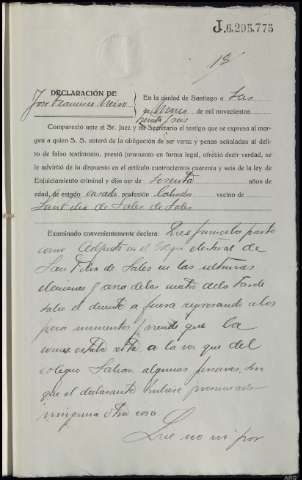 J.6.295.775
15
DECLARACIÓN DE
José Francisco
En la ciudad de Santiago a dos
de Marzo de mil novecientos
treinta y seis
Compareció ante el Sr. Juez y mi Secretario el testigo que se expresa al margen
a quien S. S. enteró de la obligación de ser veraz y penas señaladas al delito
de falso testimonio, prestó juramento en forma legal, ofreció decir verdad, se
le advirtió de lo dispuesto en el artículo cuatrocientos cuarenta y seis de la ley de
Enjuiciamiento criminal y dijo ser de sesenta años de
edad, de estado casado profesión labrador vecino de
San Félix de Sales de Sales
Examinado convenientemente declara: Que formando parte
como Adjunto en el colegio electoral de
San Félix de Sales en las últimas
elecciones y cerca de las cuatro de la tarde
salió el decente a fuera, regresando a los
pocos momentos y viendo que la
urna estaba rota a la vez que del
colegio salían algunas personas, sin
que el declarante hubiese presenciado
ninguna otra cosa
Que no